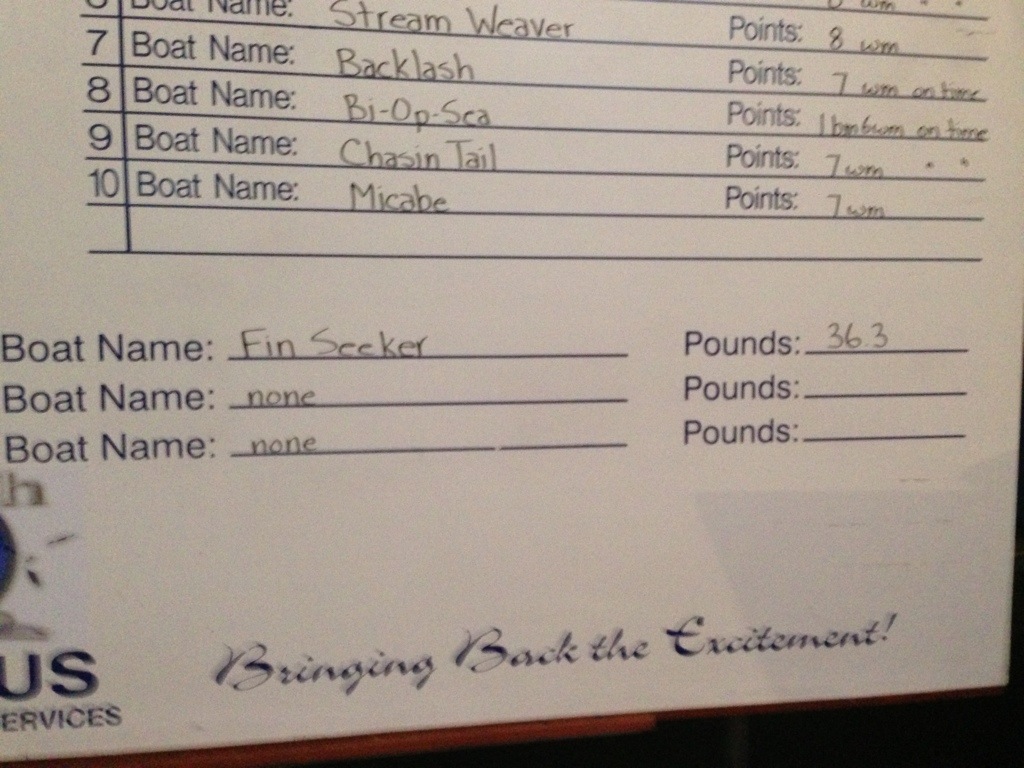 Boat Name: Stream Weaver Points: 8 wm
7 Boat Name: Backlash Points: 7 wm on time
8 Boat Name: Bi-Op-Sea Points: 1bm6wm on time
9 Boat Name: Chasin Tail Points: 7wm " "
10 Boat Name: Micabe Points: 7wm
Boat Name: Fin Seeker Pounds: 36.3
Boat Name: none Pounds:
Boat Name: none Pounds:
h
US
ERVICES
Bringing Back the Excitement!